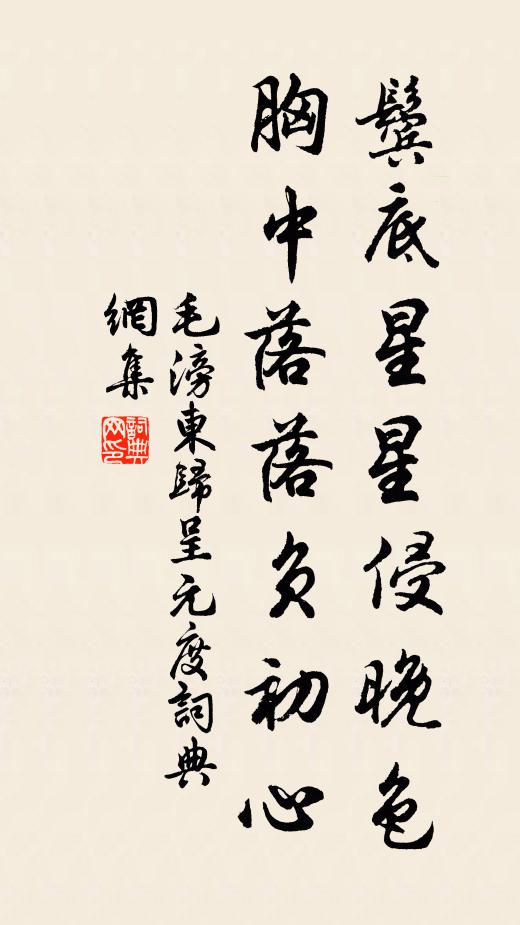 鬓底星星侵晚色
胸中落落負初心
毛滂東歸呈元度詞典
網集
詞典
网印